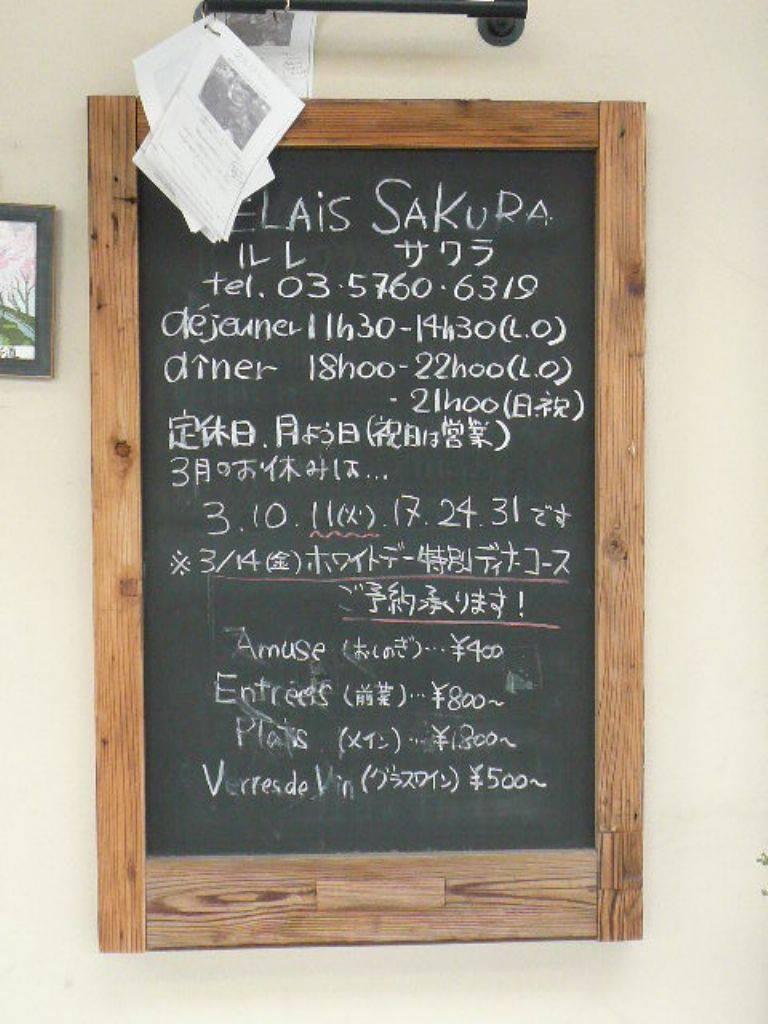 ELAiS SAKURA
ルレ サクラ
tel. 03・5760・6319
déjeuner 11h30-14h30(L.O)
dîner 18h00-22h00(L.O)
-21h00(日.祝)
定休日.月よう日(祝日は営業)
3月のお休みは...
3.10.11(火).17.24.31です
※3/14(金)ホワイトデー特別ディナーコース
ご予約承ります!
Amuse (おしのぎ)…¥400
Entrées (前菜)…¥800~
Plats (メイン)…¥1.800~
Verres de Vin (グラスワイン)¥500~